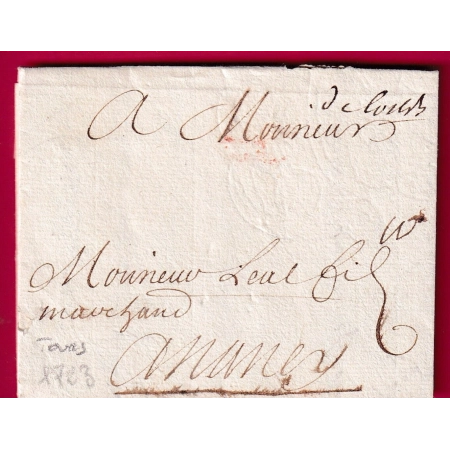 de Tours
A Monsieur
Monsieur Leal fils
marchand
Tours
1723